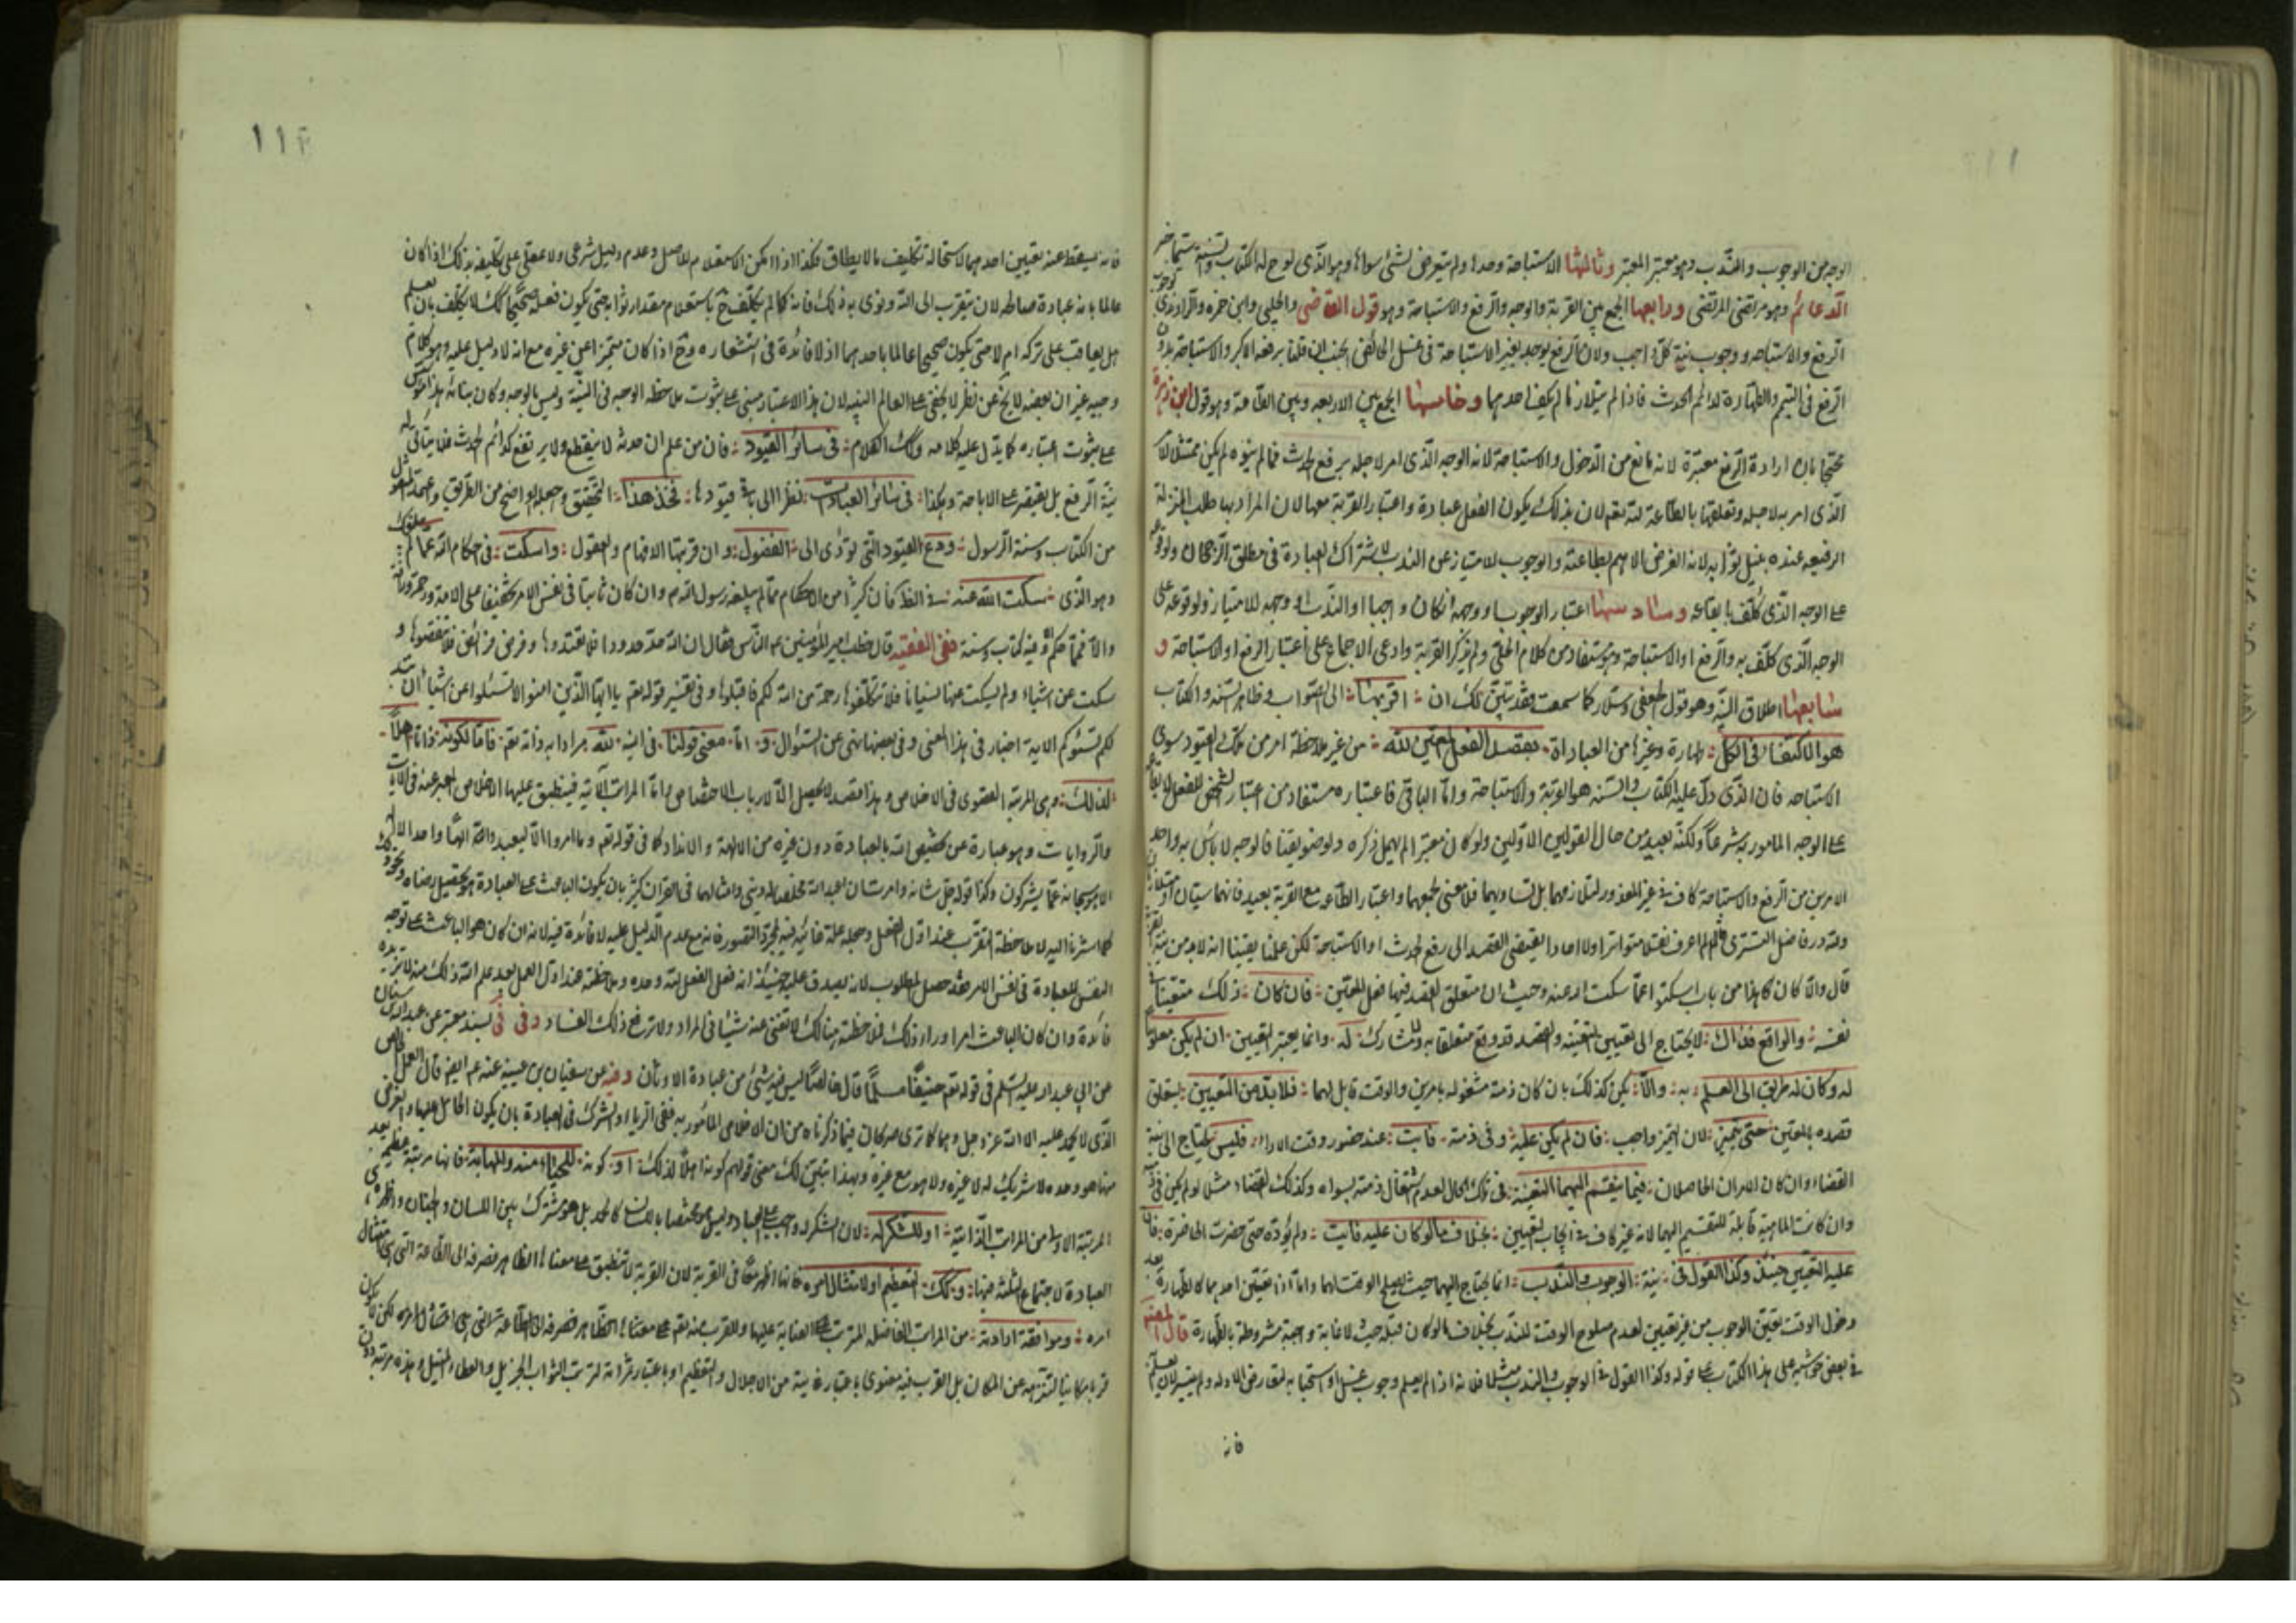 الوجه من الوجوب والندب وهو معتبر المعتبر وثالثها الاستباحة وحدها ولم يتعرض لشئ سواها وهو الذى لوح له الكتاب والسنة
الدعائم وهو مرتضى المرتضى ورابعها الجمع بين القربة والوجه والرفع والاستباحة وهو قول القاضى والحلبى وابن حمزه والراوندى
الرفع والاستباحه ووجوب نية كل واجب ولان الرفع يوجد بغير الاستباحة فى غسل الحائض الجنب ان قلنا برفعه الاكبر والاستباحة بدون
الرفع فى التيمم والطهارة لدائم الحدث فاذا لم يتلازما لم يكف احدهما وخامسها الجمع بين الاربعه وبين الطاعة وهو قول ابن زهرة
محتجا بان ارادة الرفع معتبرة لانه مانع من الدخول والاستباحة لانه الوجه الذى امر لاجله برفع الحدث فما لم ينوه لم يكن ممتثلا
الذى امر به لاجله وتعلقها بالطاعة لله تعم لان بذلك يكون الفعل عبادة واعتبار القربة معها لان المراد بها طلب المنزلة
الرفيعه عنده بنيل ثوابه لانه الغرض الاهم بطاعته والوجوب للامتياز عن الندب لاشتراك العبادة فى مطلق الرجحان ولوقوعه
على الوجه الذى كلف بايقاعه وسادسها اعتبار الوجوب او وجهه ان كان واجبا او الندب او وجهه للامتياز ولوقوعه على
الوجه الذى كلف به والرفع او الاستباحة وهو مستفاد من كلام الحلى ولم يذكر القربة وادعى الاجماع على اعتبار الرفع او الاستباحة و
سابعها اطلاق النية وهو قول الجعفى وسلار كما سمعت فقد تبين لك ان اقربها الى الصواب وظاهر السنة والكتاب
هو الاكتفا فى الكل طهارة وغيرها من العبادات بقصد الفعل المعين لله من غير ملاحظة امر من تلك القيود سوى
الاستباحه فان الذى دل عليه الكتاب والسنة هو القربة والاستباحة واما الباقى فاعتباره مستفاد من اعتبار الشخص للفعل لايقاعه
على الوجه المامور به شرعا ولكنه بعيد من حال القولين الاولين ولو كان معتبرا لم يهمل ذكره
الامرين من الرفع والاستباحة كاف فى غير المعذور لتلازمهما بل لتساويهما فلا معنى لجمعهما واعتبار الطاعة مع القربة بعيد فانهما سيان
ولله در فاضل التسترى لم اعرف نقلا متواترا ولا احادا يقتضى القصد الى رفع الحدث او الاستباحة لكن علمنا يقينا انه لا بد من نية
قال والا كان كاهذا من باب اسكتوا عما سكت الله عنه وحيث ان متعلق القصد فيها فعل المعين فان كان ذلك متعينا
نفسه والواقع فذاك لا يحتاج الى تعيين لتعينه والقصد قد وقع متعلقا به ولا مشارك له وانما يعتبر التعيين ان لم يكن معلوما
له وكان له طريق الى العلم به والا يكن كذلك بان كان ذمته مشغوله بامرين والوقت قابل لهما فلا بد من التعيين ليتعلق
قصده بالمعين حتى يتميز لان التميز واجب فان لم يكن عليه وفى ذمته فايت عند حضور وقت الاداء فليس يحتاج الى نية
القضاء وان كان الامران الحاصلان فيما ينقسم اليهما التعينه فى تلك الحال لعدم اشتغال ذمته بسواه وكذلك القضاء مثلا لو لم يكن فى
وان كانت الماهية قابلة للتقسيم اليهما لانه غير كاف فى ايجاب التعيين بخلاف مالو كان عليه فايت ولم يؤده حتى حضرت الحاضرة فان
عليه التعيين حينئذ وكذا القول فى نية الوجوب والندب انما يحتاج اليهما حيث يصلح الوقت لهما واما اذا تعين احدهما كالطهارة بعد
دخول الوقت تعين الوجوب من غير تعيين لعدم صلوح الوقت للندب بخلاف مالو كان قبله حيث لا غاية واجبة مشروطة بالطهارة قال المصنف
فى بعض حواشيه على هذا الكتاب على قوله وكذا القول فى الوجوب والندب مثلا فلانه اذا لم يعلم وجوب غسل او استحبابه لتعارض الادله ولم يتيسر له
فانه
١١٤
فانه يسقط عنه تعيين احدهما لاستحالة تكليف مالا يطاق فكذا اذا امكن الاستعلام للاصل وعدم دليل شرعى ولا عقلى على تكليفه بذلك اذا كان
عالما بانه عبادة صالحه لان يتقرب الى الله ونوى به ذلك فانه كما لم يكلف ح باستعلام مقدار ثوابه حتى يكون فعله صحيحا كك لا يكلف بان يعلم
هل يعاقب على تركه ام لا حتى يكون صحيحا عالما باحدهما اذ لا فائدة فى استشعاره وح اذا كان متميزا عن غيره مع انه لا دليل عليه وهو كلام
وجيه غير ان بعضه لا يخ عن نظر لا يخفى على العالم النبيه لان هذا الاعتبار مبنى على ثبوت ملاحظه الوجه فى النية وليس بالوجه وكان بنائه هذا
على ثبوت اعتباره كما يدل عليه كلامه وكك الكلام فى سائر القيود فان من علم ان حدثه لا ينقطع ولا يرتفع كدائم الحدث فلا يتأتى له
نية الرفع بل يقتصر على الاباحة وهكذا فى سائر العبادات نظرا الى باقى قيودها فخذ هذا التحقيق واجعله اوضح من الطريق
من الكتاب وسنة الرسول ودع القيود التى تؤدى الى الفضول وان قربتها الافهام والعقول واسكت فى احكام الله عما لم
وهو الذى سكت الله عنه فى الظ فان كثيرا من الاحكام مما لم يبلغه رسول الله م وان كان ثابتا فى نفس الامر تخفيفا على الامة ورحمة
والا فما من حكم الا وفيه كتاب وسنة ففى الفقيه قال خطب امير المؤمنين ع الناس فقال ان الله حد حدودا فلا تعتدوها وفرض فرائض فلا تنقصوها و
سكت عن اشياء ولم يسكت عنها نسيانا فلا تتكلفوها رحمة من الله لكم فاقبلوها وفى تفسير قوله تعم يا ايها الذين امنوا لا تسئلوا عن اشياء ان تبد
لكم تسؤكم الايه اخبار فى هذا المعنى وفى بعضها نهى عن السئوال و اما معنى قولنا فى النية لله مرادا به ذاته تعم فاما لكونه ذاتا اهلا
لذلك وهى المرتبة القصوى فى الاخلاص وهذا مقصد لا يحصل الا لارباب الاختصاص واما المراتب الآتية فينطبق عليها الاخلاص المعبر عنه فى الايات
والروايات وهو عبارة عن تخصيص الله بالعبادة دون غيره من الالهة والانداد كما فى قوله تعم وما امروا الا ليعبدوا الله الها واحدا لا اله
الا هو سبحانه عما يشركون وكذا قوله جل شانه وامرت ان اعبد الله مخلصا له دينى وامثالهما فى القران كثير بان يكون الباعث على العبادة هو تحصيل رضاه ونحوه
كما اشرنا اليه لا ملاحظة التقرب عند اول الفعل وجعله علة غائيه فيه لمجرد التصور فانه مع عدم الدليل عليه لا فائدة فيه لانه ان كان هو الباعث على توجه
النفس للعبادة فى نفس الامر فقد حصل المطلوب لانه يصدق عليه حينئذ انه فعل الفعل لله وحده وملاحظته عند اول العمل بعد علم الله ذلك منه لا تزيده
فائدة وان كان الباعث امرا وراء ذلك فملاحظته هنالك لا تغنى عنه شيئا فى المراد ولا ترفع ذلك الفساد وفى فى بسند معتبر عن عبد الله بن سنان
عن ابى عبد الله عليه السلم فى قوله تعم حنيفا مسلما قال خالصا ليس فيه شئ من عبادة الاوثان وفيه عن سفيان بن عيينة عنه ع ايضا قال العمل الخالص
الذى لا يحمد عليه الا الله عز وجل وهما كما ترى صريحان فيما ذكرناه من ان الاخلاص المأمور به نفى الرياء والشرك فى العبادة بان يكون الحامل عليها والغرض
منها هو وحده لا شريك له لا غيره ولا هو مع غيره وبهذا يتبين لك معنى قولهم كونه اهلا لذلك او كونه للحياء منه والمهابة فانها مرتبة عظيمه بعد
المرتبة الاولى من المراتب الذاتية او للشكر له لان الشكر له واجب على العباد وليس هو مختصا باللسان كالحمد بل هو مشترك بين اللسان والجنان والاركان
العبادة لاجتماع الثلثة فيها وكك لتعظيم او لامتثال امره فانها اظهر منها فى القربة لان القربة لا تنطبق على معناها الظاهر فتصرف الى الطاعة التى هى امتثال
امره وموافقة ارادته من المراتب الفاضله المترتب على العناية عليها والقرب منه تعم على معناها الظاهر فتصرفه الى الطاعة التى هى امتثال امره لكن لا يكون
قربا مكانيا لتنزهه عن المكان بل القرب فيه معنوى باعتبار غايته من الاجلال والتعظيم او باعتبار ثمراته لترتب الثواب الجزيل والعطاء النبيل وهذه مرتبة دون